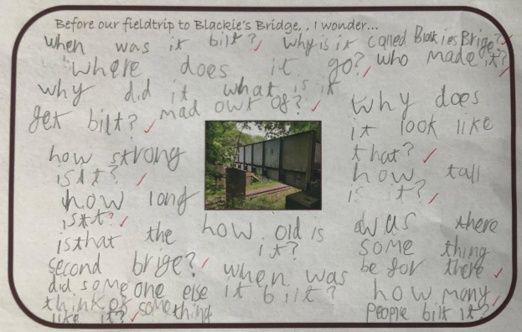 Before our fieldtrip to Blackie's Bridge, I wonder...
when was it bilt? Why is it called Blackies Brige?
where does it go? who made it?
why did it get bilt?
what is it mad owt of?
Why does
it look like
that?
how strong
is it?
how tall
is it?
how long
is it?
how old is
it?
is that the
second brige?
when was
it bilt?
was there
some thing
be for there
did some one else
think of something
like it?
how many
people bilt it?
something